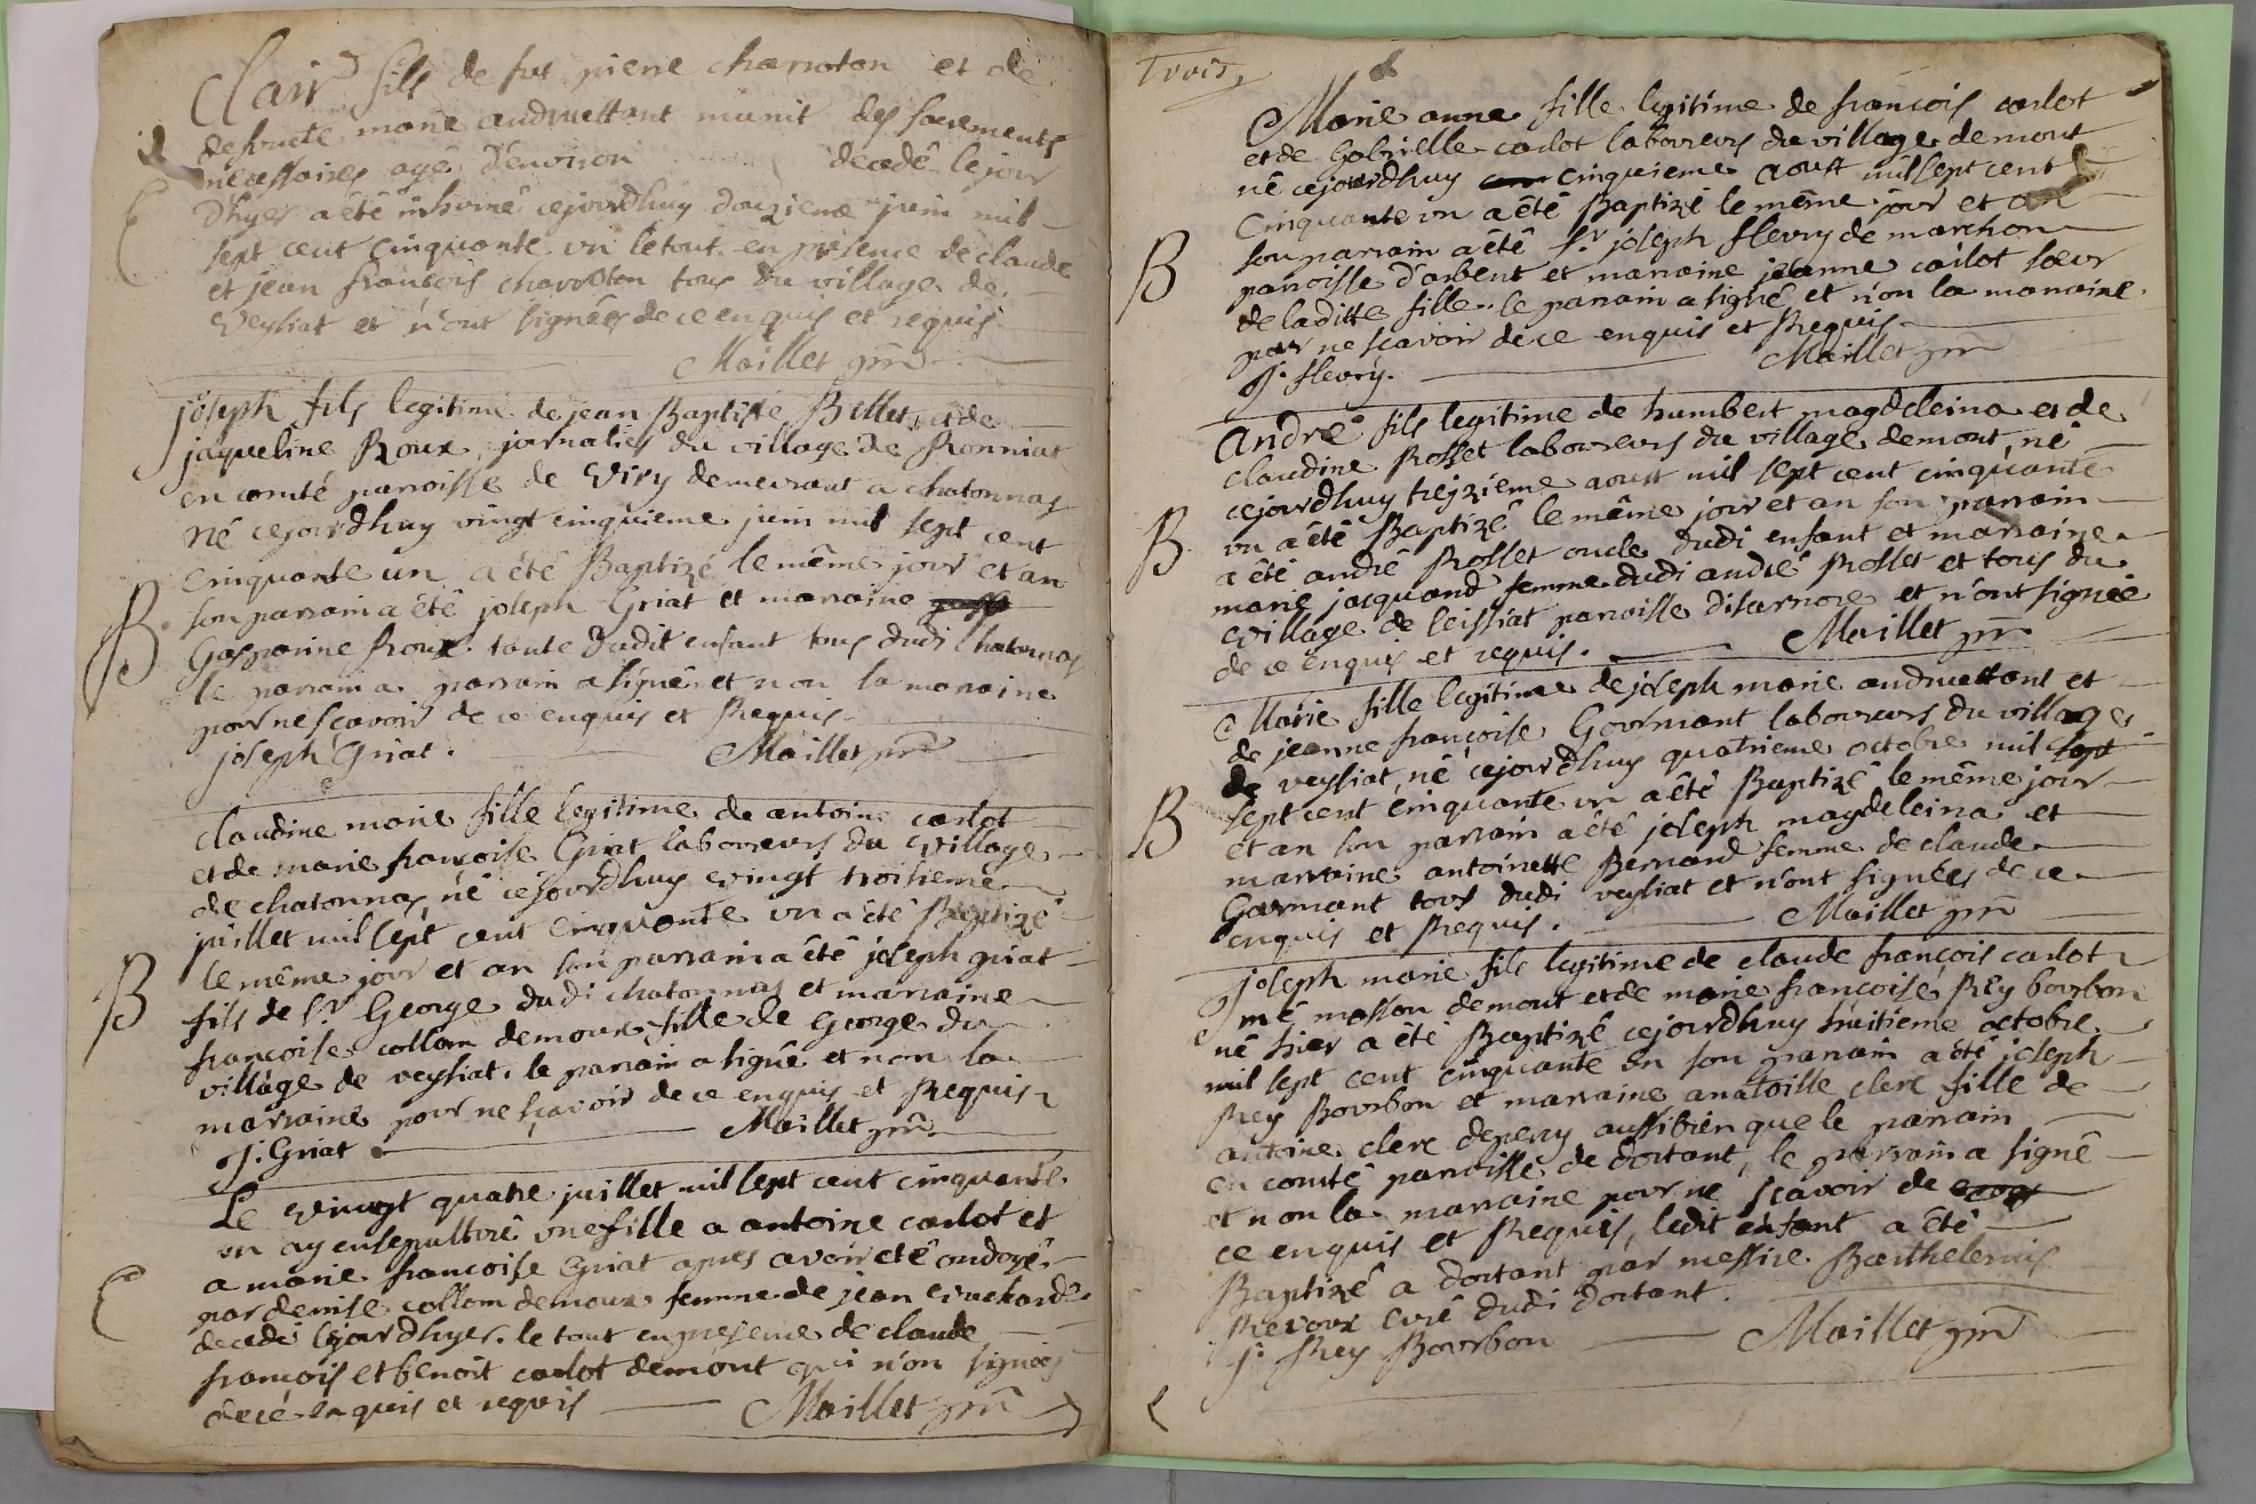 Clair fils de feu pierre charroton et de
defuncte marie andruettant munit des sacrements
necessaires agé d'environ decedé le jour
d'hyer a été inhumé cejourdhuy douzieme juin mil
sept cent cinquante un le tout en presence de claude
et jean françois charroton tous du village de
veysiat et n'ont signées de ce enquis et requis
Maillet prr̃
joseph fils legitime de jean Baptiste Billet et de
jaqueline Roux, jornalier du village de Ronniat
en comté parroisse de Viry demeurant a chatonnas
Né cejourdhuy vingt cinquieme juin mil sept cent
cinquante un a été Baptizé le même jour et an
B
son parrain a été joseph Griat et marraine
Gasparine Roux tante dudit enfant tous dudi chatonnas
le parrain a parrain a signé et non la marraine
pour ne sçavoir de ce enquis et Requis
joseph Griat. Maillet prr̃
claudine marie fille legitime de antoine carlot
et de marie françoise Griat laboureurs du village
de chatonnas, né cejourdhuy vingt troisieme
juillet mil sept cent cinquante un a été Baptizé
B
le même jour et an son parrain a été joseph griat
fils de Sr George dudi chatonnas et marraine
françoise collom demoux fille de george du
village de veysiat. le parrain a signé et non la
marraine pour ne sçavoir de ce enquis et Requis
J: Griat Maillet prr̃
Le vingt quatre juillet mil sept cent cinquante
un ay ensepulturé une fille a antoine carlot et
a marie françoise Griat apres avoir eté ondoyé
par denise collom demoux femme de jean
decedé le jour dhyer. le tout en presence de claude
françois et benoit carlot demont qui n'on signées
de ce enquis et requis Maillet prr̃
Trois
Marie anne fille legitime de françois carlot
et de Gabrielle carlot laboureurs du village de mont
né cejourdhuy cinquieme aoust mil sept cent
cinquante un a été Baptizé le même jour et an
B
son parrain a été Sr joseph fleury de marchon
parroisse d'arbent et marraine jeanne carlot sœur
de laditte fille. le parrain a signé et n'on la marraine
pour ne sçavoir de ce enquis et Requis
J: fleury. Maillet prr̃
André fils legitime de humbert magdeleina et de
claudine Rosset laboureurs du village demont, né
cejourdhuy treizieme aoust mil sept cent cinquante
B
un a été Baptizé le même jour et an son parrain
a été andré Rosset oncle dudi enfant et marraine
marie jacquand femme dudi andré Rosset et tous du
village de leissiat parroisse disarnore et n'ont signée
de ce enquis et requis. Maillet prr̃
Marie fille legitime de joseph marie andruettant et
de jeanne françoise Gourmant laboureurs du village
de veysiat, né cejourdhuy quatrieme octobre mil sept
B
sept cent cinquante un a été Baptizé le même jour
et an son parrain a été joseph magdeleina et
marraine antoinette Bernard femme de claude
Garmant tous dudi veysiat et n'ont signées de ce
enquis et Requis. Maillet prr̃
joseph marie fils legitime de claude françois carlot
mê masson demont et de marie françoise Rey bourbon
né hier a été Baptizé cejourdhuy huitieme octobre
mil sept cent cinquante un son parrain a été joseph
Rey Bourbon et marraine anatoille clerc fille de
antoine clerc depeny aussibien que le parrain
en comté parroisse de dortant, le parrain a signé
et non la marraine pour ne sçavoir de
ce enquis et Requis, ledit enfant a été
Baptizé a dortant par messire Barthelemis
Revoux curé dudi dortant.
J: Rey Bourbon Maillet prr̃